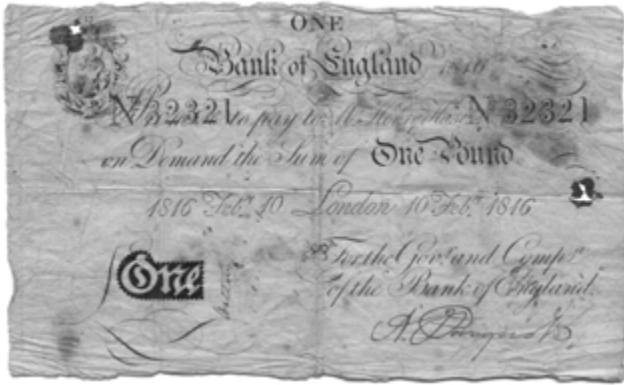 ONE
Bank of England 1816
No 32321 to pay to No 32321
on Demand the Sum of One Pound
1816 Feby. 10 London 10 Feby. 1816
For the Govr. and Compa.
of the Bank of England.
One